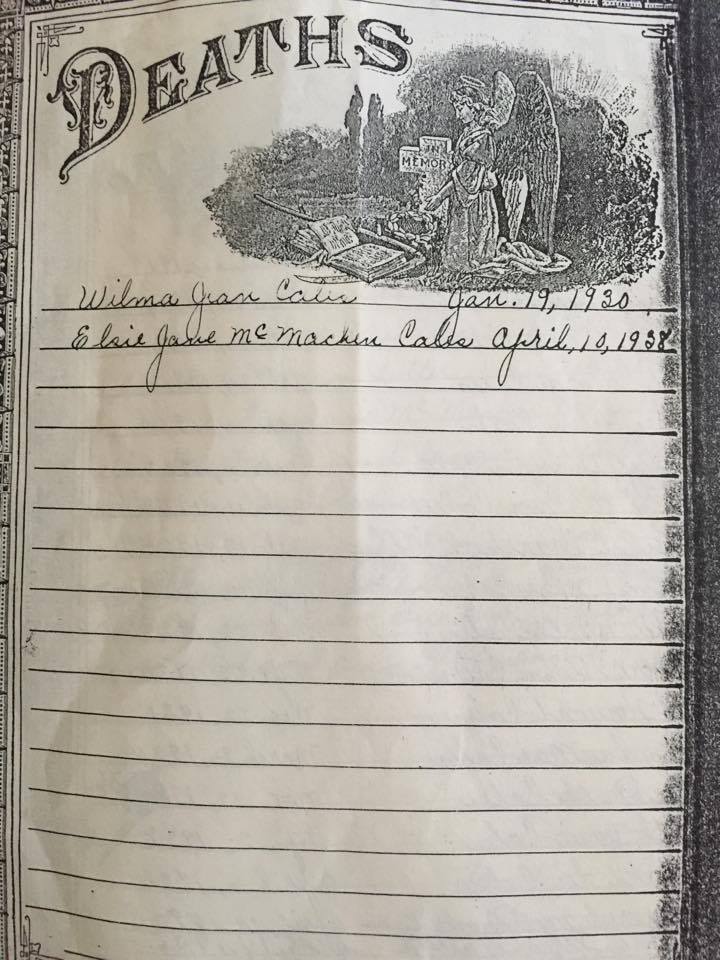 DEATHS
MEMOR
Wilma Jean Cales Jan. 19, 1930.
Elsie Jane Mc Macken Cales April, 10, 1938